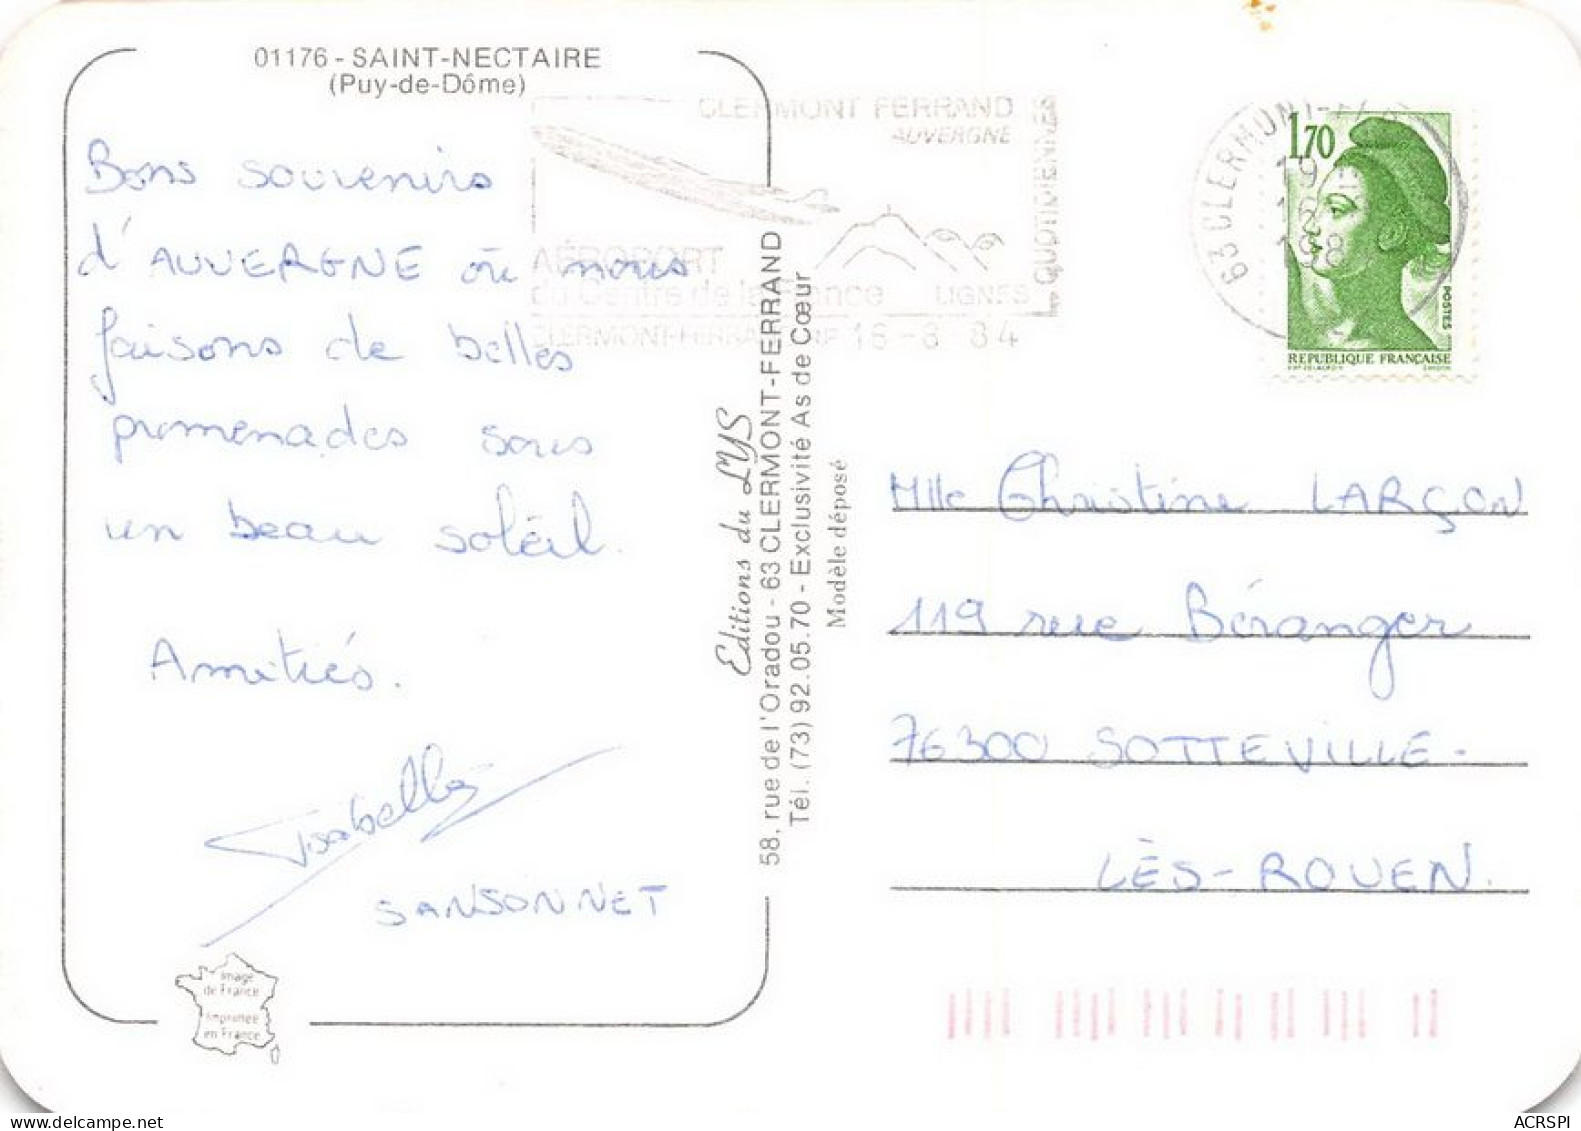 01176 - SAINT-NECTAIRE
(Puy-de-Dôme)
Bons souvenirs
d'AUVERGNE où nous
faisons de belles
promenades sous
un beau soleil.
Amitiés.
Isabelle
SANSONNET
Image
de France
Imprimée
en France
CLERMONT FERRAND
AUVERGNE
AÉROPORT
du Centre de la France
LIGNES
QUOTIDIENNES
16-8 84
Editions du LYS
58, rue de l'Oradou - 63 CLERMONT-FERRAND
Tél. (73) 92.05.70 - Exclusivité As de Cœur
Modèle déposé
63 CLERMONT-
19
16
198
1,70
POSTES
REPUBLIQUE FRANÇAISE
Mlle Christine LARÇON
119 rue Béranger
76300 SOTTEVILLE-
LÈS-ROUEN.
delcampe.net
ACRSPI